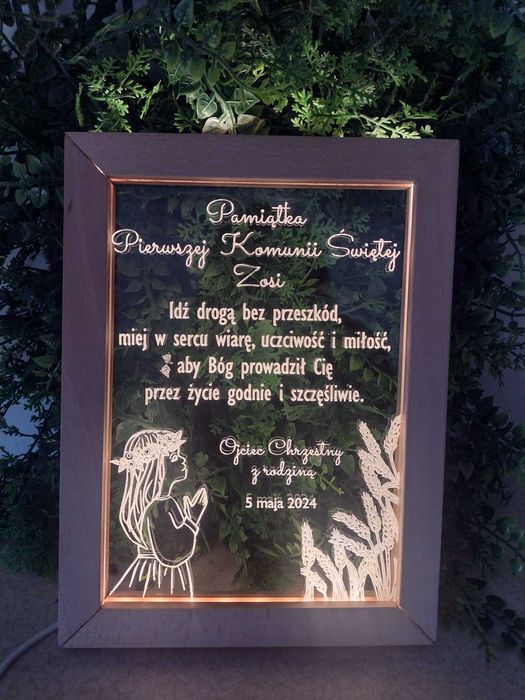 Pamiątka
Pierwszej Komunii Świętej
Zosi
Idź drogą bez przeszkód,
miej w sercu wiarę, uczciwość i miłość,
aby Bóg prowadził Cię
przez życie godnie i szczęśliwie.
Ojciec Chrzestny
z rodziną
5 maja 2024